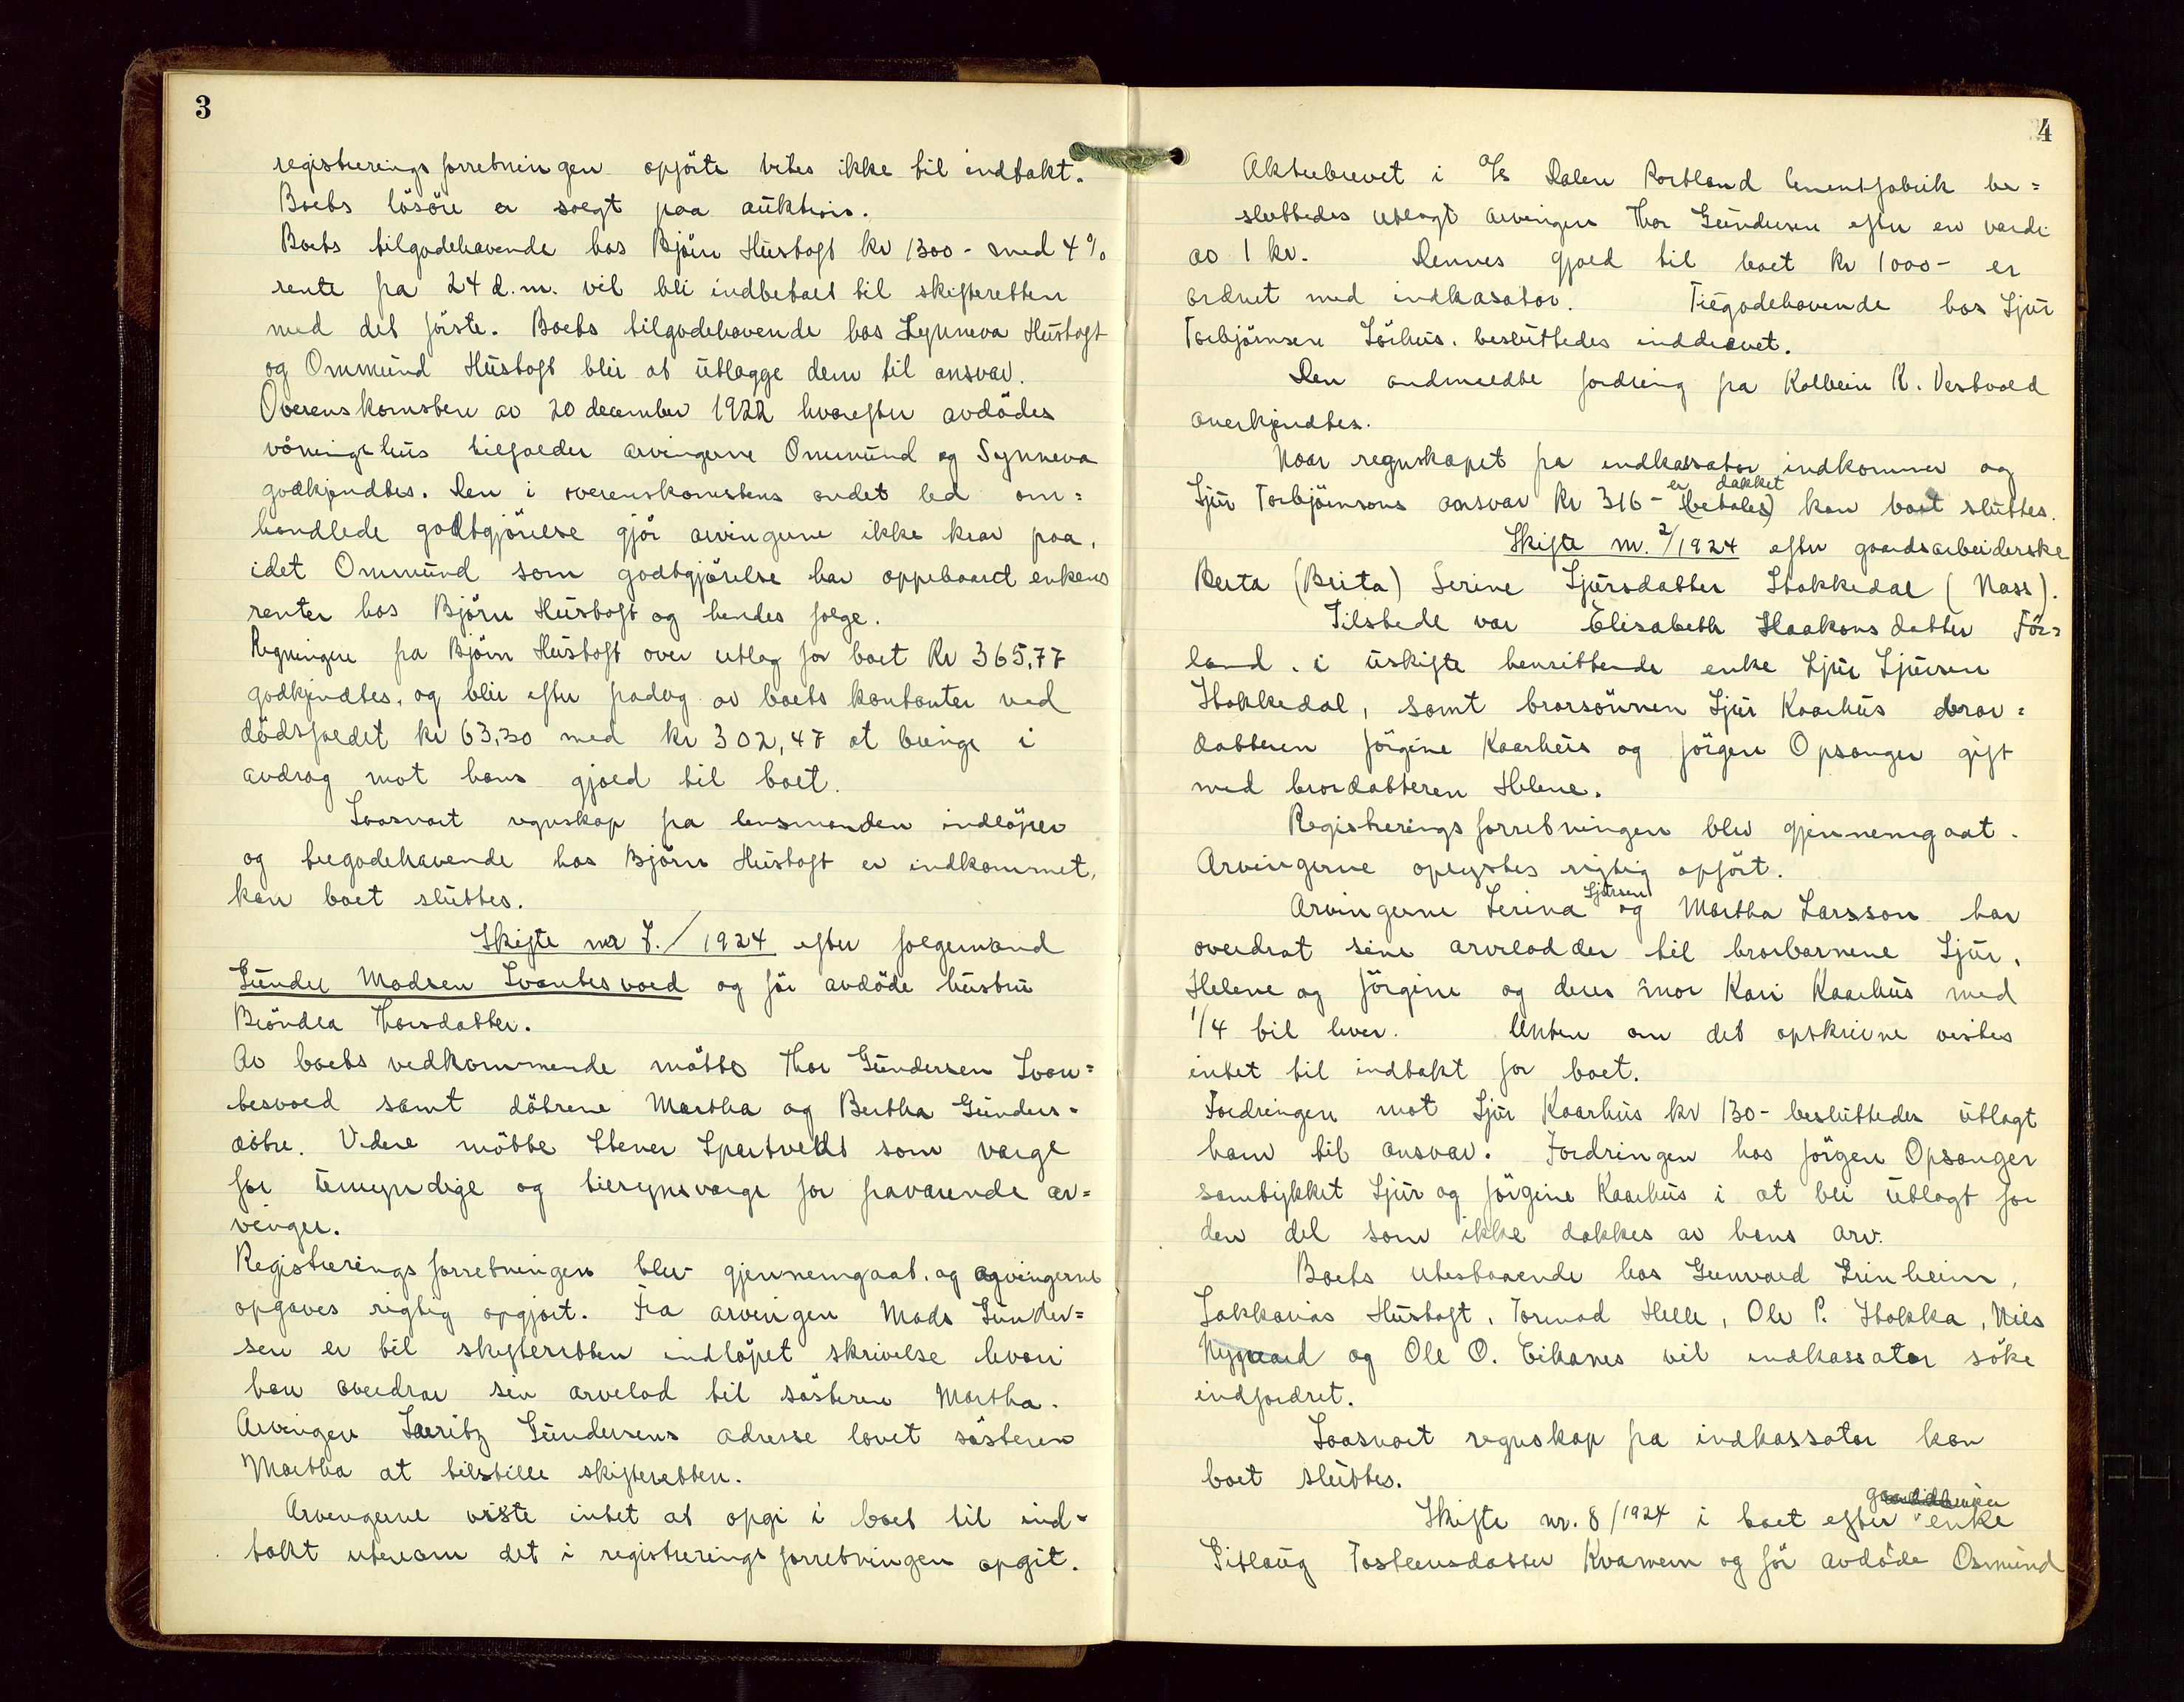 3
registreringsforretningen opførte vites ikke til indtækt.
Boets løsøre er solgt paa auktion.
Boets tilgodehavende hos Bjørn Hustoft kr 1300 - med 4%
rente fra 24 d.m. vil bli indbetalt til skifteretten
med det første. Boets tilgodehavende hos Synneva Hustoft
og Ommund Hustoft blir at utlægge dem til ansvar.
Overenskomsten av 20 december 1922 hvorefter avdødes
våningshus tilfalder arvingerne Ommund og Synneva
godkjendtes. Den i overenskomstens andet led om=
handlede godtgjørelse gjør arvingerne ikke krav paa,
idet Ommund som godtgjørelse har oppebaaret enkens
renter hos Bjørn Hustoft og hendes følge.
Regningen fra Bjørn Hustoft over utlæg for boet Kr 365,77
godkjendtes, og blir efter fradrag av boets kontanter ved
dødsfaldet kr 63,30 med kr 302,47 at bringe i
avdrag mot hans gjæld til boet.
Saasnart regnskap fra lensmanden indløper
og tilgodehavende hos Bjørn Hustoft er indkommet,
kan boet sluttes.
Skifte nr 7./1924 efter følgemand
Gunder Madsen Svantesvold og før avdøde hustru
Brøndla Thorsdatter.
Av boets vedkommende møtte Thor Gundersen Svan=
tesvold samt døtrene Martha og Bertha Gunders=
døtre. Videre møtte Stener Spartveldt som værge
for umyndige og tilsynsværge for fraværende ar=
vinger.
Registreringsforretningen blev gjennemgaat, og arvingerne
opgaves rigtig opgjort. Fra arvingen Mads Gunder=
sen er til skifteretten indløpet skrivelse hvori
han overdrar sin arvelod til søsteren Martha.
Arvingen Lauritz Gundersens adresse lovet søsteren
Martha at tilstille skifteretten.
Arvingerne visste intet at opgi i boet til ind=
tækt utenom det i registreringsforretningen opgit.
4
Aktiebrevet i A/S Dalen Portland Cementfabrik be=
sluttedes utlagt arvingen Thor Gundersen efter en værdi
av 1 kr. Dennes gjæld til boet kr 1000- er
ordnet med indkasator. Tilgodehavende hos Sjur
Torbjørnsen Sørhus, besluttedes inddrevet.
Den anmeldte fordring fra Kolbein K. Vestvold
anerkjendtes.
Naar regnskapet fra indkassator indkommer og
Sjur Torbjørnsons ansvar kr 316 - er dækket (betales) kan boet sluttes.
Skifte nr. 2/1924 efter gaardsarbeiderske
Berta (Brita) Serine Sjursdatter Stokkedal (Næss).
Tilstede var Elisabeth Haakonsdatter Før=
land, i uskifte hensittende enke Sjur Sjursen
Stokkedal, samt brorsønnen Sjur Kaarhus bror=
datteren Jørgine Kaarhus og Jørgen Opsanger gift
med brordatteren Helene.
Registreringsforretningen blev gjennemgaat.
Arvingerne oplystes rigtig opført.
Arvingerne Serina Sjursen og Martha Larsson har
overdrat sine arvelodder til brorbarnene Sjur,
Helene og Jørgine og deres mor Kari Kaarhus med
1/4 til hver. Uten om det opskrivne vistes
intet til indtækt for boet.
Fordringen mot Sjur Kaarhus kr 130 - besluttedes utlagt
ham til ansvar. Fordringen hos Jørgen Opsanger
samtykket Sjur og Jørgine Kaarhus i at bli utlagt for
den del som ikke dækkes av hans arv.
Boets utestaaende hos Gunvald Grinheim,
Sakkarias Hustoft, Tormod Helle, Ole P. Stokka, Nils
Nygaard og Ole O. Eikanes vil indkassator søke
indfordret.
Saasnart regnskap fra indkassator kan
boet sluttes.
Skifte nr. 8/1924 i boet efter enke
Sitlaug Tosteinsdatter Kvamen og før avdøde Osmund